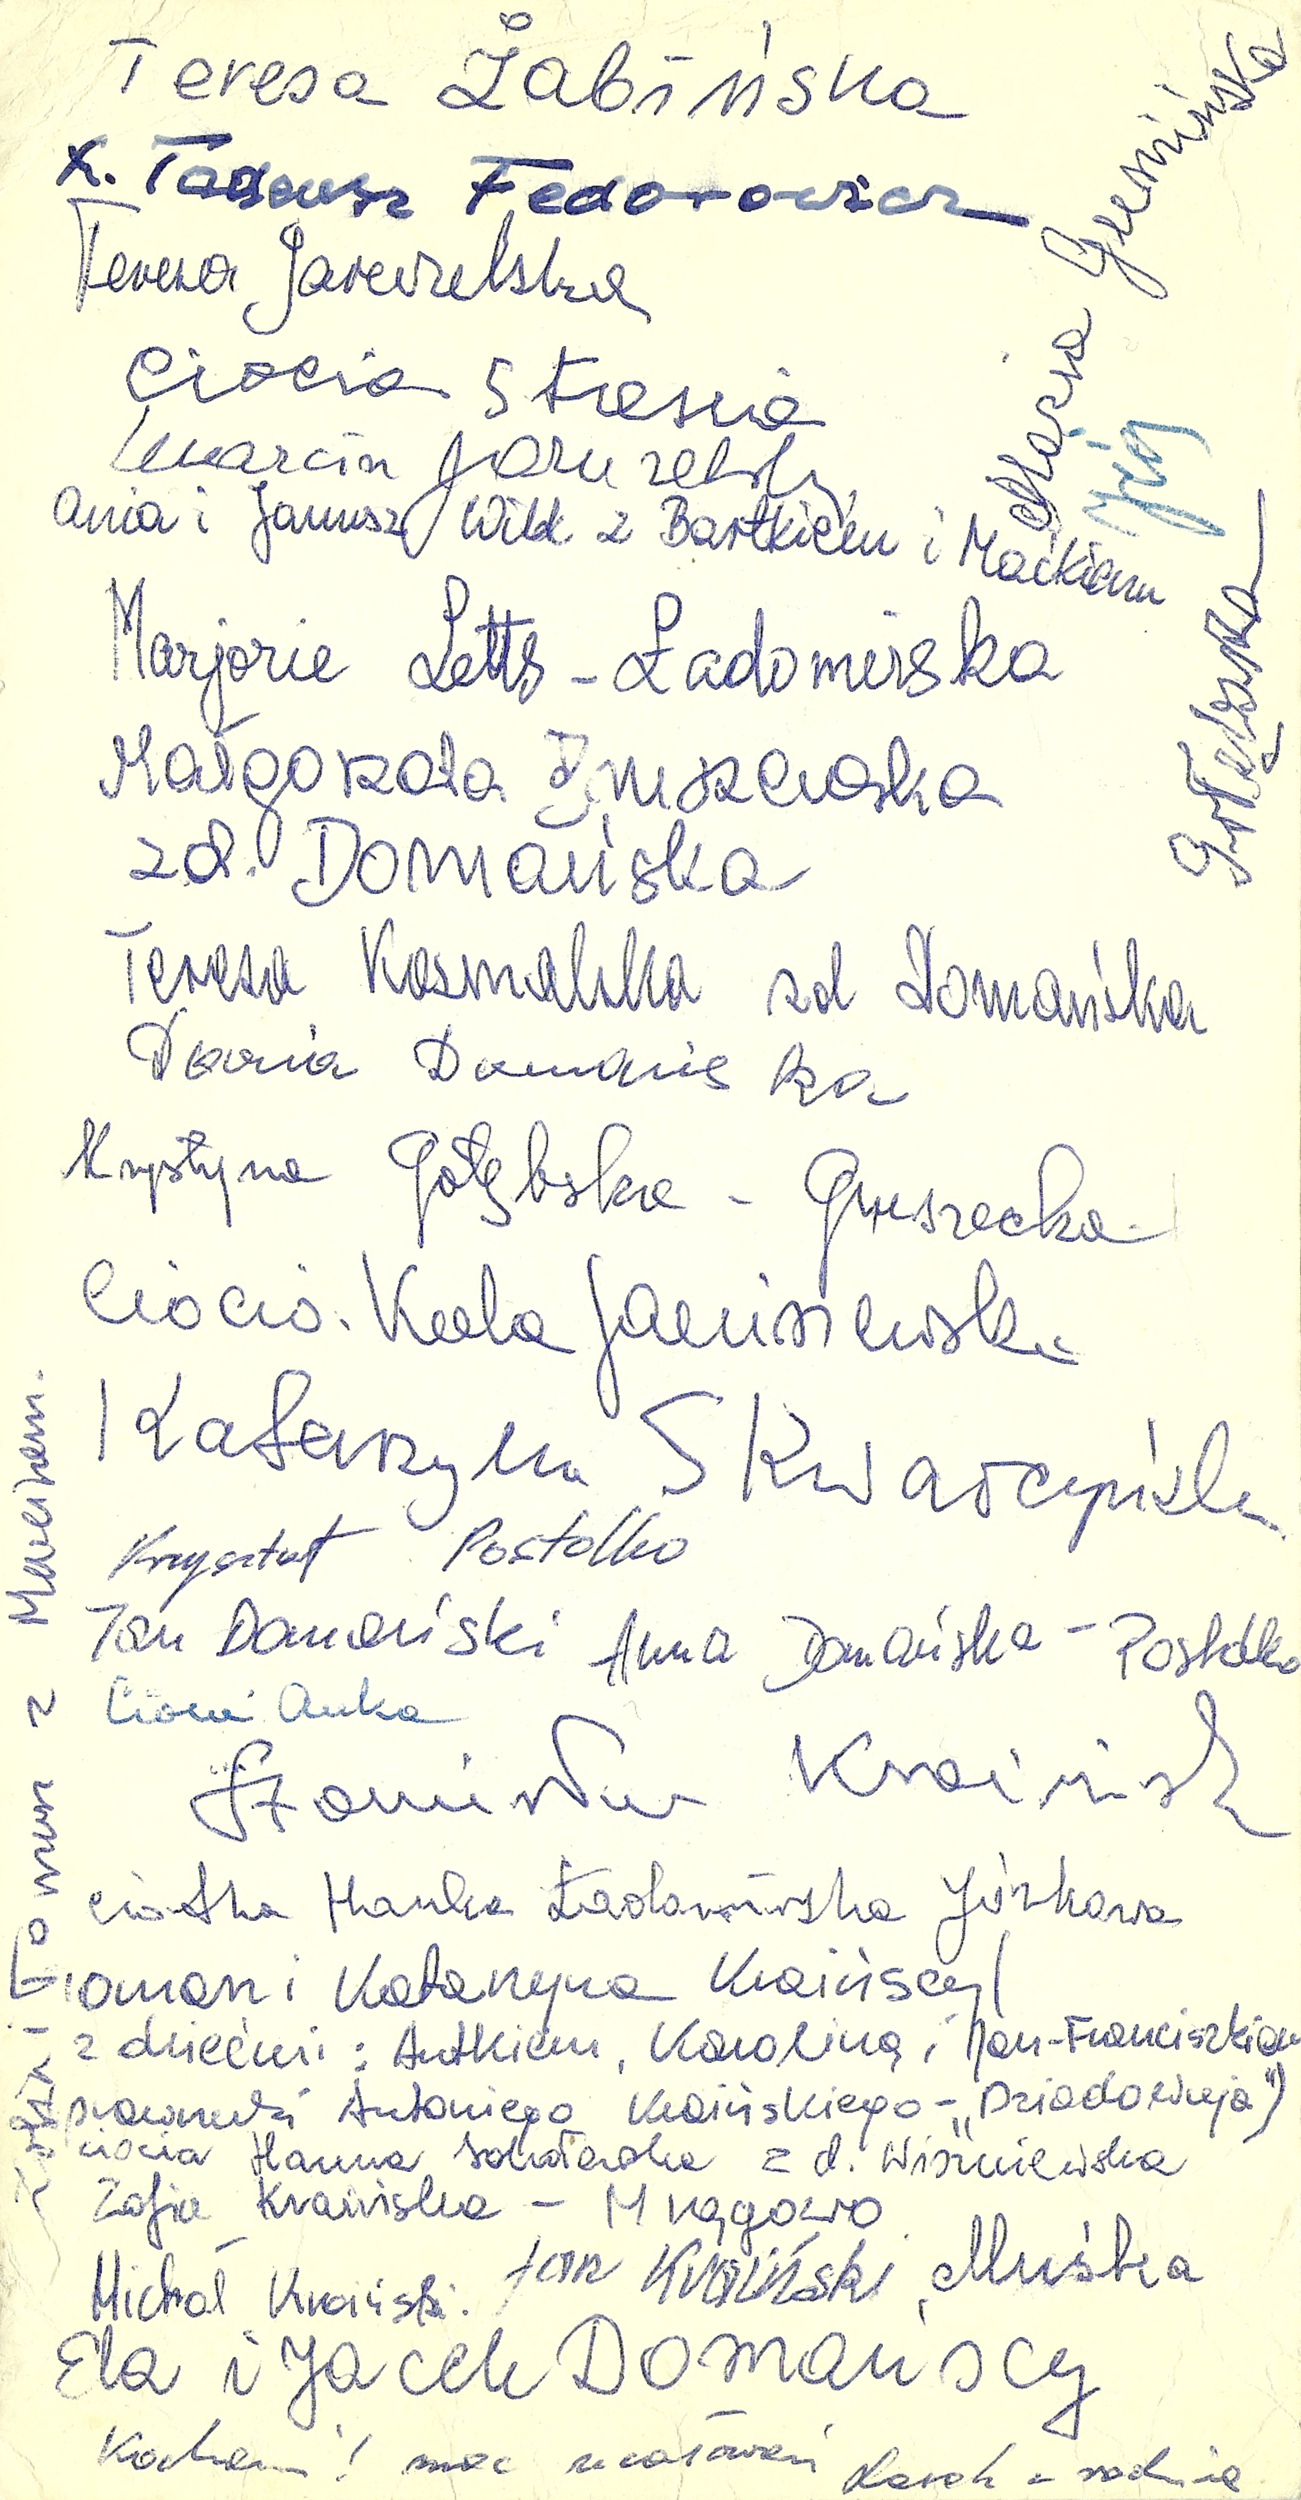 Teresa Żabińska
X. Tadeusz Fedorowicz
Teresa Jaruzelska
Ciocia Stasia
Marcin Jaruzelski
Ania i Janusz Wilk z Bartkiem i Maćkiem
Maria Gumińska
Marjorie Letts-Ładomirska
Małgorzata
zd. Domańska
Teresa Kosmalska zd Domańska
Daria Domańska
Krystyna Gołębska - Gruszecka
Ciocia Kula Janiszewska
Katarzyna Skwarczyńska
Krzysztof Postołko
Jan Domański Anna Domańska-Postołko
Ciocia Anka
Stanisław Kraiński
ciotka Hanka Ładomirska Józkowa
Tomasz i Katarzyna Kraińscy (
z dziećmi: Antkiem, Karoliną i Jan-Franciszkiem
prawnuki Antoniego Kraińskiego-„Dziadovieja")
ciocia Hanna Sokołowska z d. Wiśniewska
Zofia Kraińska - Mrągowo
Michał Kraiński. Jan Kraiński, Muśka
Ela i Jacek Domańscy
Kochani! moc ucałowań z rodziną
i Tomasz z Macikiem.